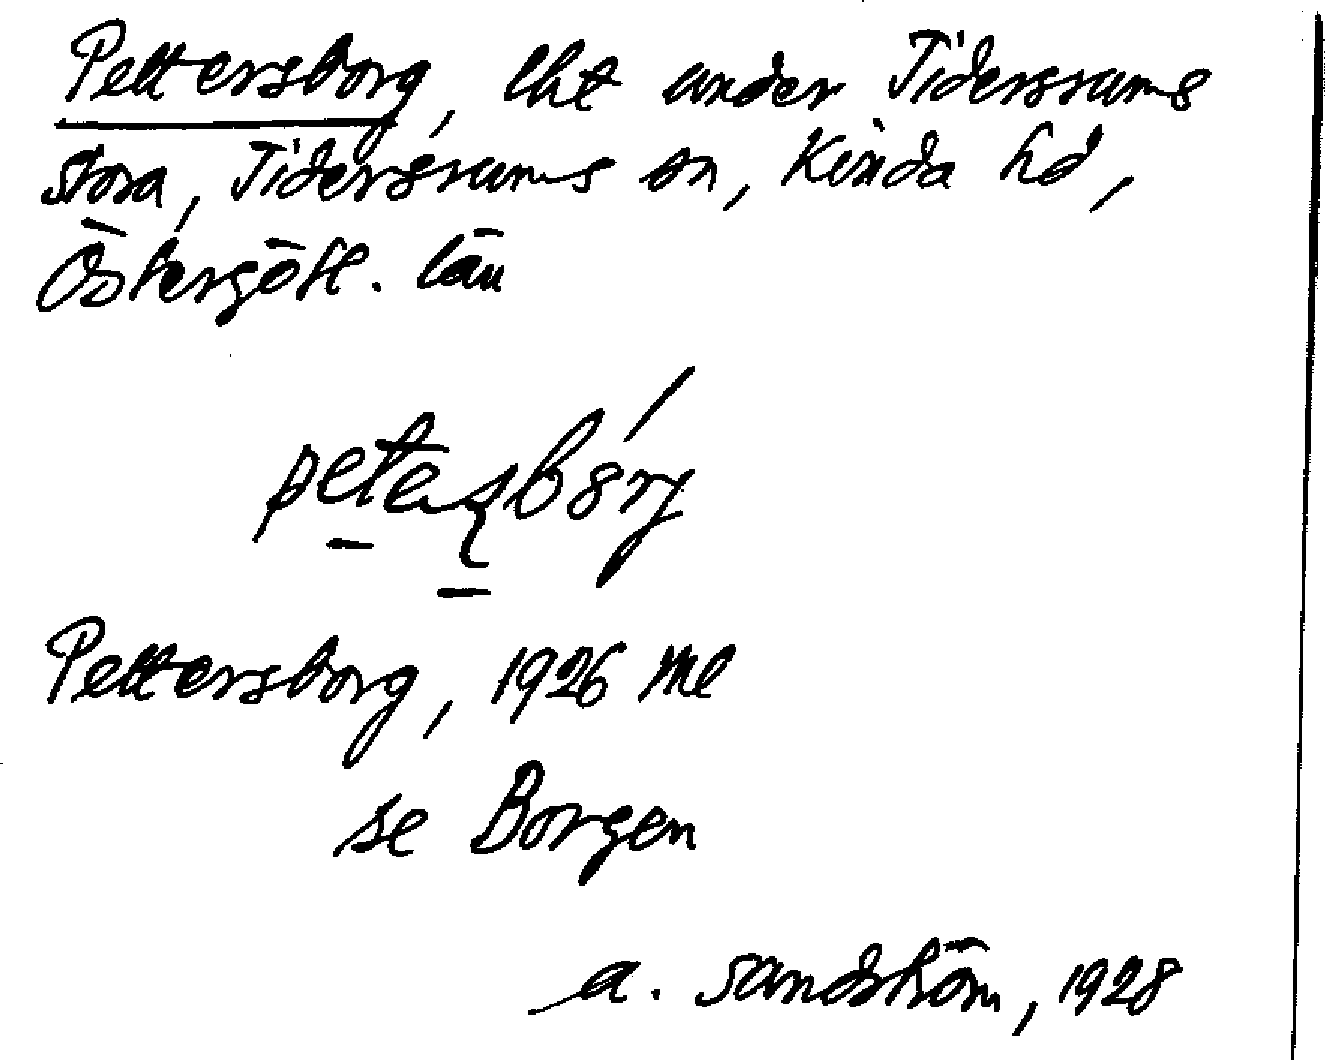 Pettersborg, lht under Tidersrums
stora, Tidersrums sn, Kinda hd,
Östergötl. län
Pettersborg, 1926 Me
se Borgen
A. Sandström, 1928